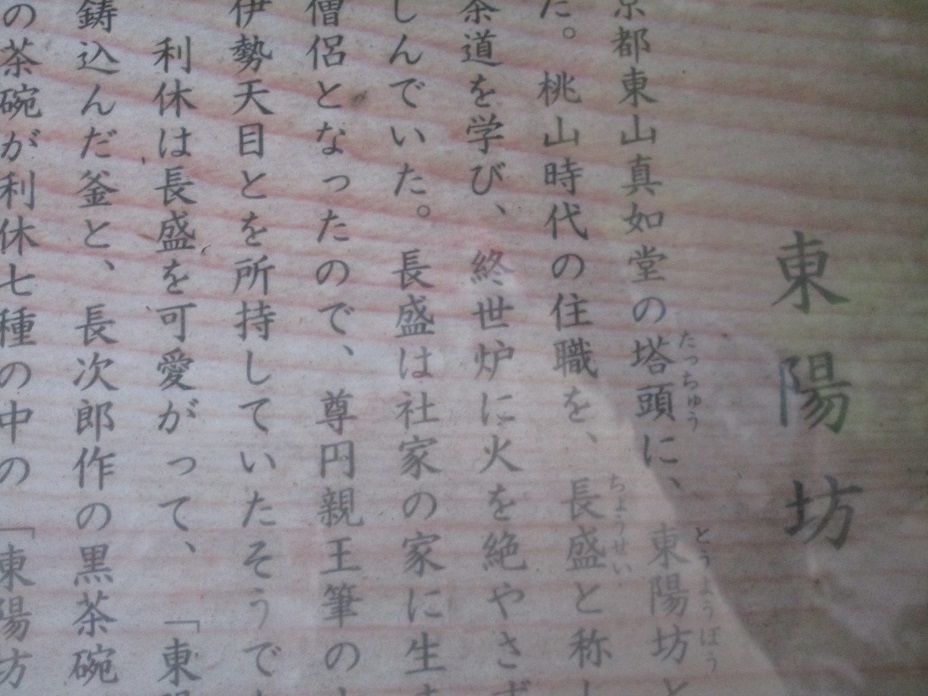 東陽坊
京都東山真如堂の塔頭に、東陽坊と
た。桃山時代の住職を、長盛と称し
茶道を学び、終世炉に火を絶やさず
しんでいた。長盛は社家の家に生ま
僧侶となったので、尊円親王筆の
伊勢天目とを所持していたそうで
利休は長盛を可愛がって、「東陽
鋳込んだ釜と、長次郎作の黒茶碗
の茶碗が利休七種の中の「東陽坊
たっちゅう
とうようぼう
ちょうせい